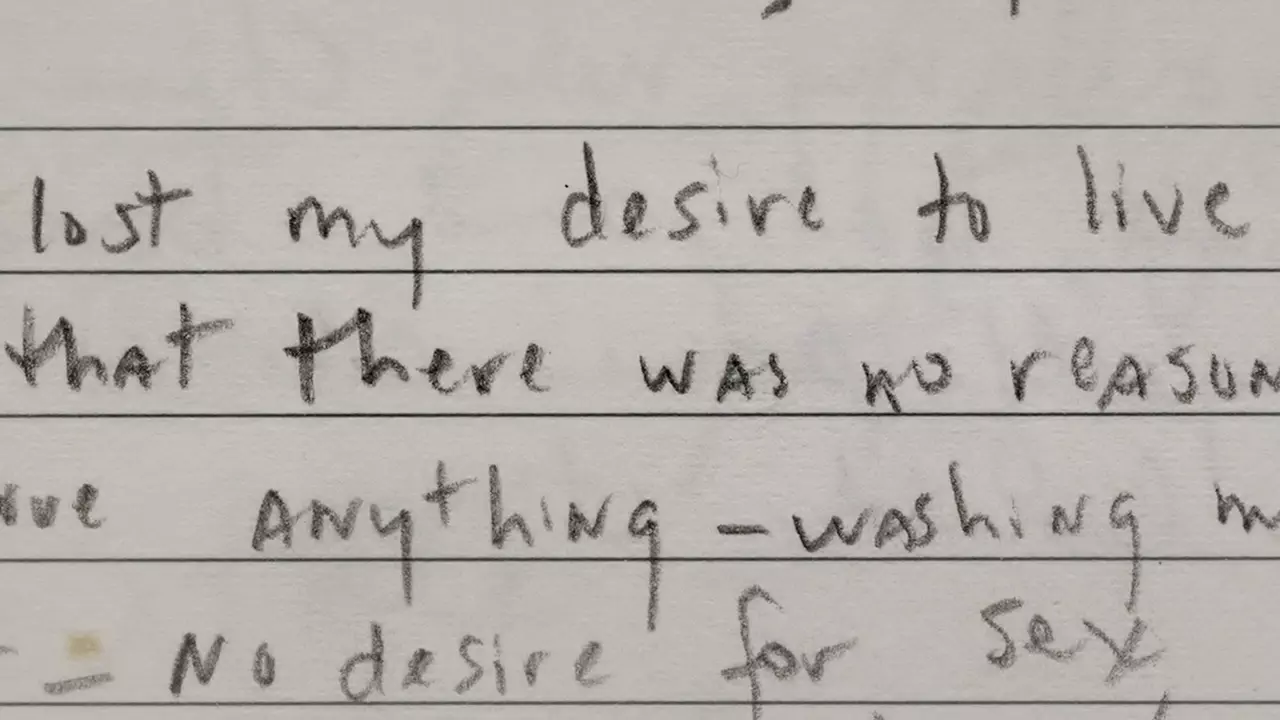 lost my desire to live
that there was no reason
Anything - washing
- No desire for sex